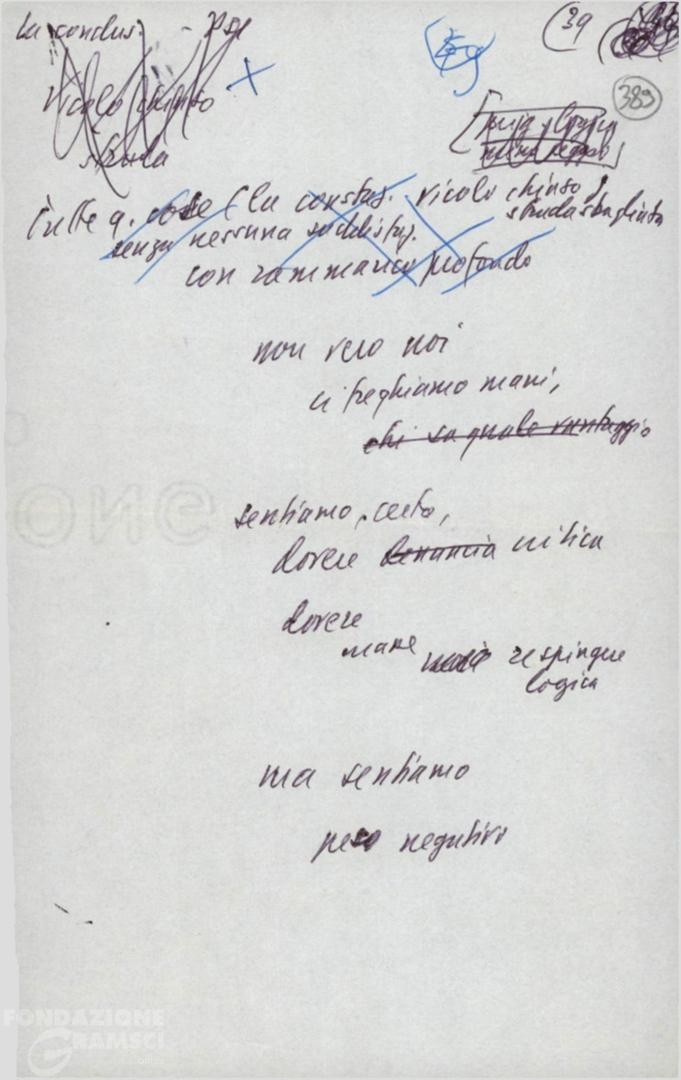 La conclus. - PSI
(39
389
vicolo chiuso
strada
tutte q. cose (la constat. vicolo chiuso,
strada sbagliata
senza nessuna soddisfaz.
con rammarico profondo
non vero noi
ci freghiamo mani,
chi sa quale vantaggio
sentiamo, certo,
dovere denuncia critica
dovere
respingere
logica
ma sentiamo
peso negativo
FONDAZIONE
GRAMSCI